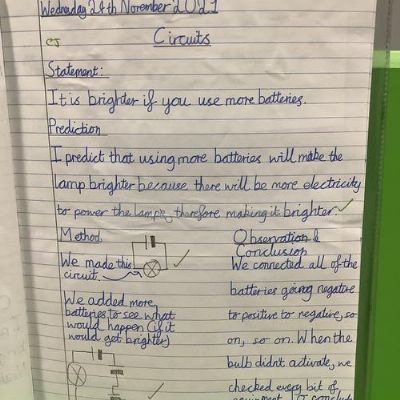 Wednesday 24th November 2021
Circuits
Statement:
It is brighter if you use more batteries.
Prediction
I predict that using more batteries will make the
lamp brighter because there will be more electricity
to power the lamp, therefore making it brighter
Method
We made this
circuit.
We added more
batteries to see what
would happen (if it
would get brighter)
Observation &
Conclusion
We connected all of the
batteries going negative
to positive to negative, so
on, so on. When the
bulb didn't activate, we
checked every bit of
equipment.